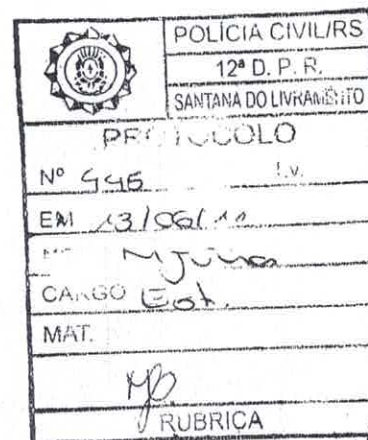 POLÍCIA CIVIL/RS
12ª D. P. R.
SANTANA DO LIVRAMENTO
PROTOCOLO
Nº 446 Lv.
EM 13/06/11
CARGO Est.
MAT.
RUBRICA